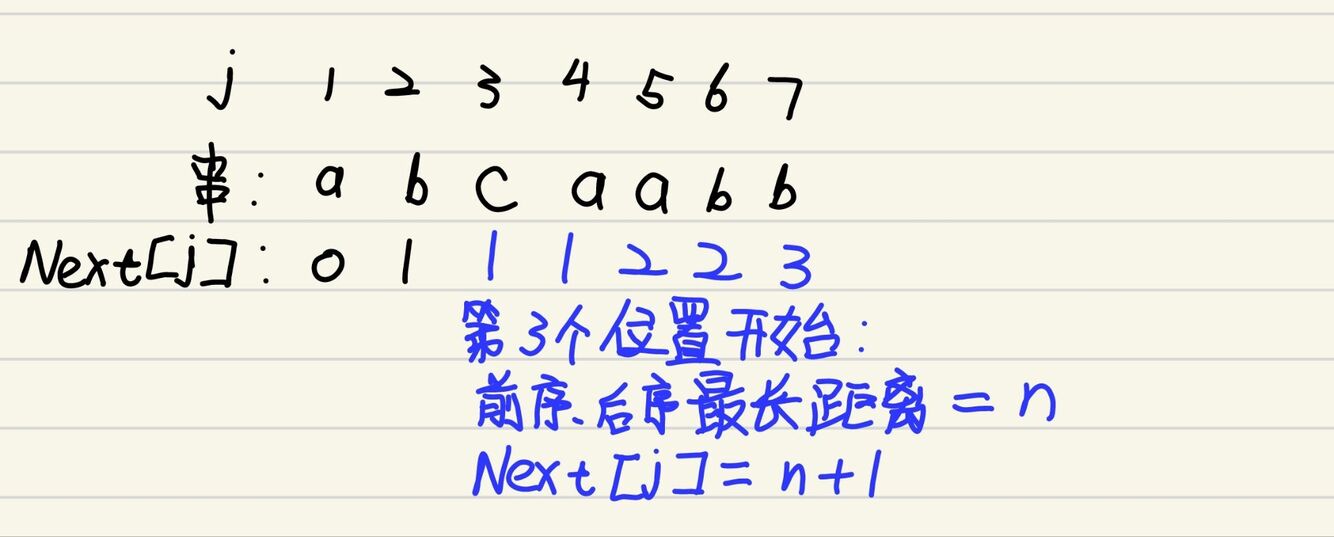 j 1 2 3 4 5 6 7
串: a b c a a b b
Next[j]: 0 1 1 1 2 2 3
第3个位置开始:
前序、后序最长距离 = n
Next[j] = n+1